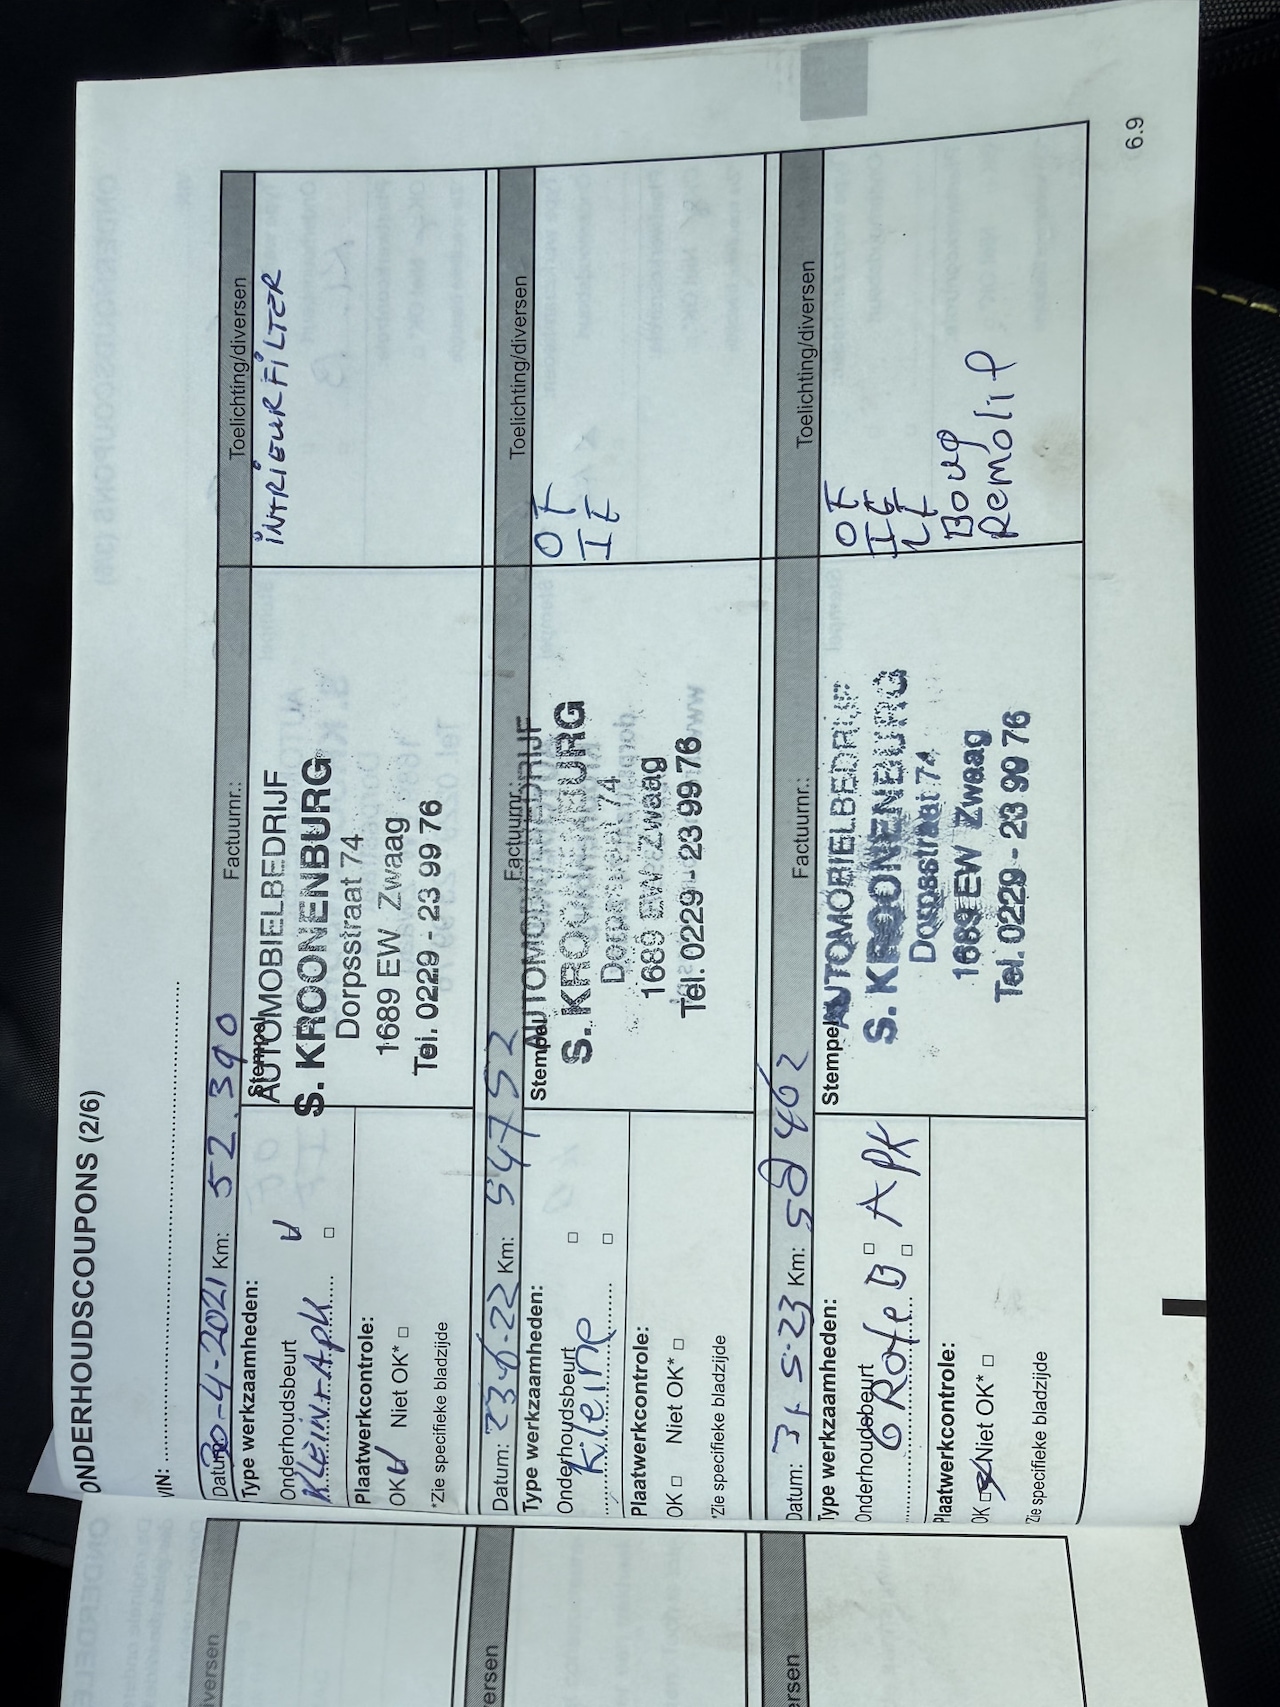 ONDERHOUDSCOUPONS (2/6)
VIN:
Datum: 30-4-2021 Km: 52.390 Factuurnr.: Toelichting/diversen
Type werkzaamheden:
Onderhoudsbeurt
KLEIN+APK
Plaatwerkcontrole:
OK Niet OK*
*Zie specifieke bladzijde
Stempel
AUTOMOBIELBEDRIJF
S. KROONENBURG
Dorpsstraat 74
1689 EW Zwaag
Tel. 0229 - 23 99 76
INTRIEURFILTER
Datum: 23-6-22 Km: 54752 Factuurnr.: Toelichting/diversen
Type werkzaamheden:
Onderhoudsbeurt
Kleine
Plaatwerkcontrole:
OK Niet OK*
*Zie specifieke bladzijde
Stempel
AUTOMOBIELBEDRIJF
S. KROONENBURG
Dorpsstraat 74
1689 EW Zwaag
Tel. 0229 - 23 99 76
OF
IF
Datum: 31-5-23 Km: 58462 Factuurnr.: Toelichting/diversen
Type werkzaamheden:
Onderhoudsbeurt
Grote B APK
Plaatwerkcontrole:
OK Niet OK*
*Zie specifieke bladzijde
Stempel
AUTOMOBIELBEDRIJF
S. KROONENBURG
Dorpsstraat 74
1689 EW Zwaag
Tel. 0229 - 23 99 76
OF
IF
LF
Boug
Remolie
6.9